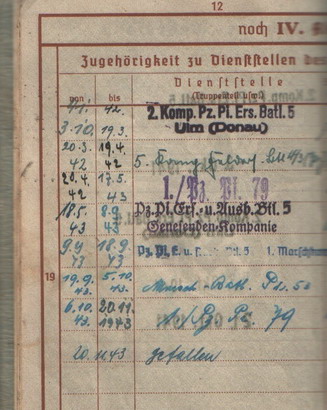 12
noch IV.
Zugehörigkeit zu Dienststellen des
von bis Dienststelle
(Truppenteil usw.)
41. 42. 2. Komp. Pz. Pi. Ers. Batl. 5
3.10. 19.3. Ulm (Donau)
20.3. 19.4.
42 42 5.
20.4. 17.5. 1./Pz. Pi. 79
42 43
18.5. 8.9. Pz. Pi. Ers.- u. Ausb. Btl. 5
43 43 Genesenden-Kompanie
9.9 18.9. Pz. Pi. E. u. Btl. 5 1. Marschkom
43 43
19 19.9. 5.10. Marsch-Batl. Pz. 50
43. 43.
6.10. 20.11. 1./Pz Pi. 79
43. 1943
20.11.43 gefallen